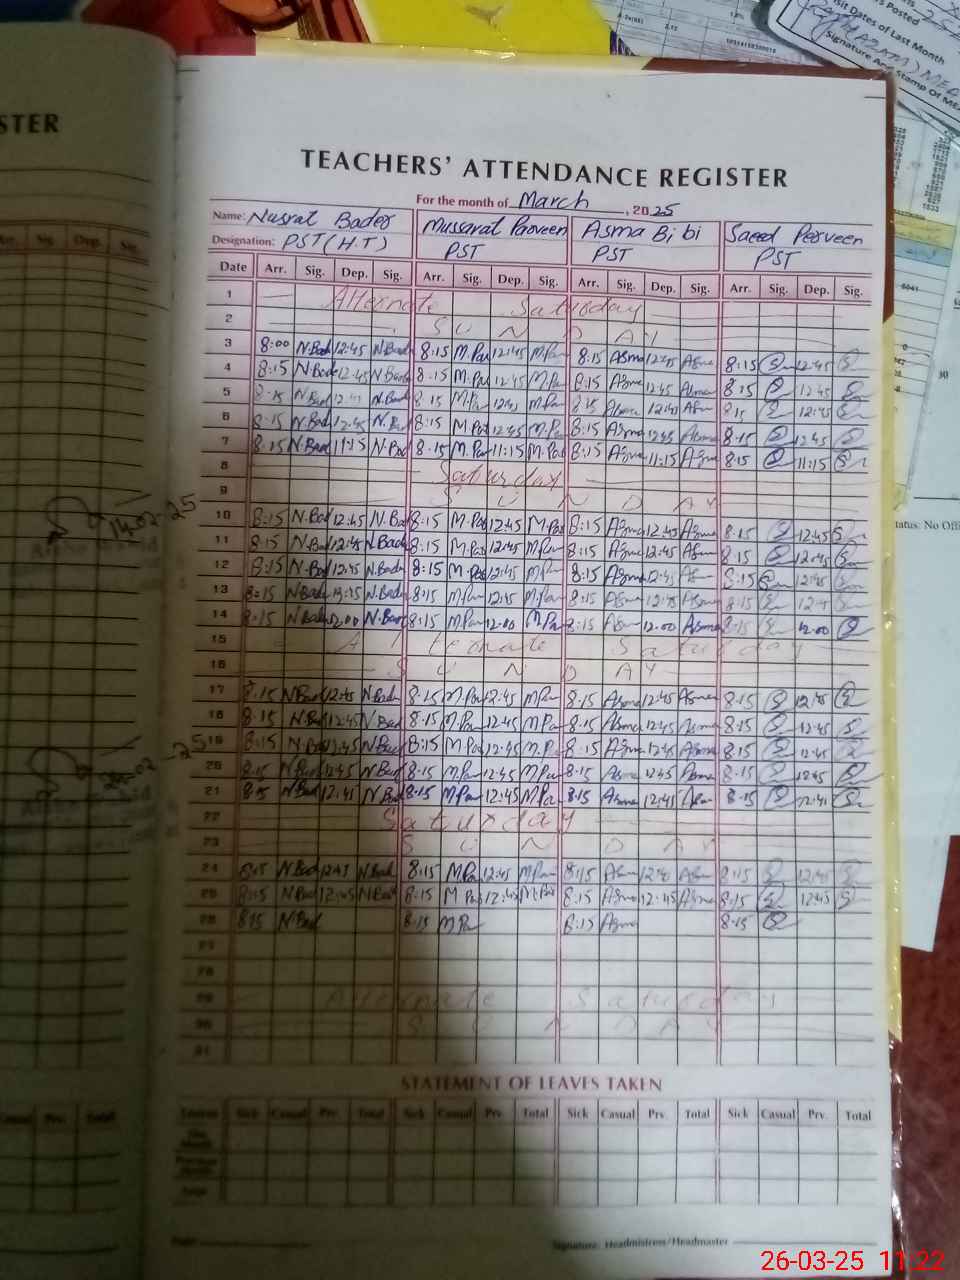 STER
Posted
sit Dates of Last Month
Signature And Stamp Of ME
TEACHERS' ATTENDANCE REGISTER
For the month of March, 2025
Name: Nusrat Bader Mussarat Parveen Asma Bibi Saeed Perveen
Designation: PST (H.T) PST PST PST
Date Arr. Sig. Dep. Sig. Arr. Sig. Dep. Sig. Arr. Sig. Dep. Sig. Arr. Sig. Dep. Sig.
1 Alternate Saturday
2 SUNDAY
3 8:00 N.Bad 12:45 N.Bad 8:15 M.Par 12:45 M.Par 8:15 Asma 12:45 Asma 8:15 12:45
4 8:15 N.Bad 12:45 N.Bad 8:15 M.Par 12:45 M.Par 8:15 Asma 12:45 Asma 8:15 12:45
5 8:15 N.Bad N.Bad 8:15 M.Par 12:45 M.Par 8:15 Asma 12:45 Asma 8:15 12:45
6 8:15 N.Bad 12:45 N.Bad 8:15 M.Par 12:45 M.Par 8:15 Asma 12:45 Asma 8:15 12:45
7 8:15 N.Bad 11:15 N.Bad 8:15 M.Par 11:15 M.Par 8:15 Asma 11:15 Asma 8:15 11:15
8 Saturday
9 SUNDAY
10 8:15 N.Bad 12:45 N.Bad 8:15 M.Par 12:45 M.Par 8:15 Asma 12:45 Asma 8:15 12:45
11 8:15 N.Bad 12:45 N.Bad 8:15 M.Par 12:45 M.Par 8:15 Asma 12:45 Asma 8:15 12:45
12 8:15 N.Bad 12:45 N.Bad 8:15 M.Par 12:45 M.Par 8:15 Asma 12:45 Asma 8:15 12:45
13 8:15 N.Bad N.Bad 8:15 M.Par 12:45 M.Par 8:15 Asma 12:45 Asma 8:15 12:45
14 8:15 N.Bad 12:00 N.Bad 8:15 M.Par 12:00 M.Par 8:15 Asma 12:00 Asma 8:15 12:00
15 Alternate Saturday
16 SUNDAY
17 8:15 N.Bad 12:45 N.Bad 8:15 M.Par 12:45 M.Par 8:15 Asma 12:45 Asma 8:15 12:45
18 8:15 N.Bad 12:45 N.Bad 8:15 M.Par 12:45 M.Par 8:15 Asma 12:45 Asma 8:15 12:45
19 8:15 N.Bad 12:45 N.Bad 8:15 M.Par 12:45 M.Par 8:15 Asma 12:45 Asma 8:15 12:45
20 8:15 N.Bad 12:45 N.Bad 8:15 M.Par 12:45 M.Par 8:15 Asma 12:45 Asma 8:15 12:45
21 8:15 N.Bad 12:45 N.Bad 8:15 M.Par 12:45 M.Par 8:15 Asma 12:45 Asma 8:15 12:45
22 Saturday
23 SUNDAY
24 8:15 N.Bad 12:45 N.Bad 8:15 M.Par 12:45 M.Par 8:15 Asma 12:45 Asma 8:15 12:45
25 8:15 N.Bad 12:45 N.Bad 8:15 M.Par 12:45 M.Par 8:15 Asma 12:45 Asma 8:15 12:45
26 8:15 N.Bad 8:15 M.Par 8:15 Asma 8:15
27
28
29 Alternate Saturday
30 SUNDAY
31
STATEMENT OF LEAVES TAKEN
Leaves Sick Casual Prv. Total Sick Casual Prv. Total Sick Casual Prv. Total Sick Casual Prv. Total
Signature: Headmistress/Headmaster
14-02-25
26-03-25 11:22